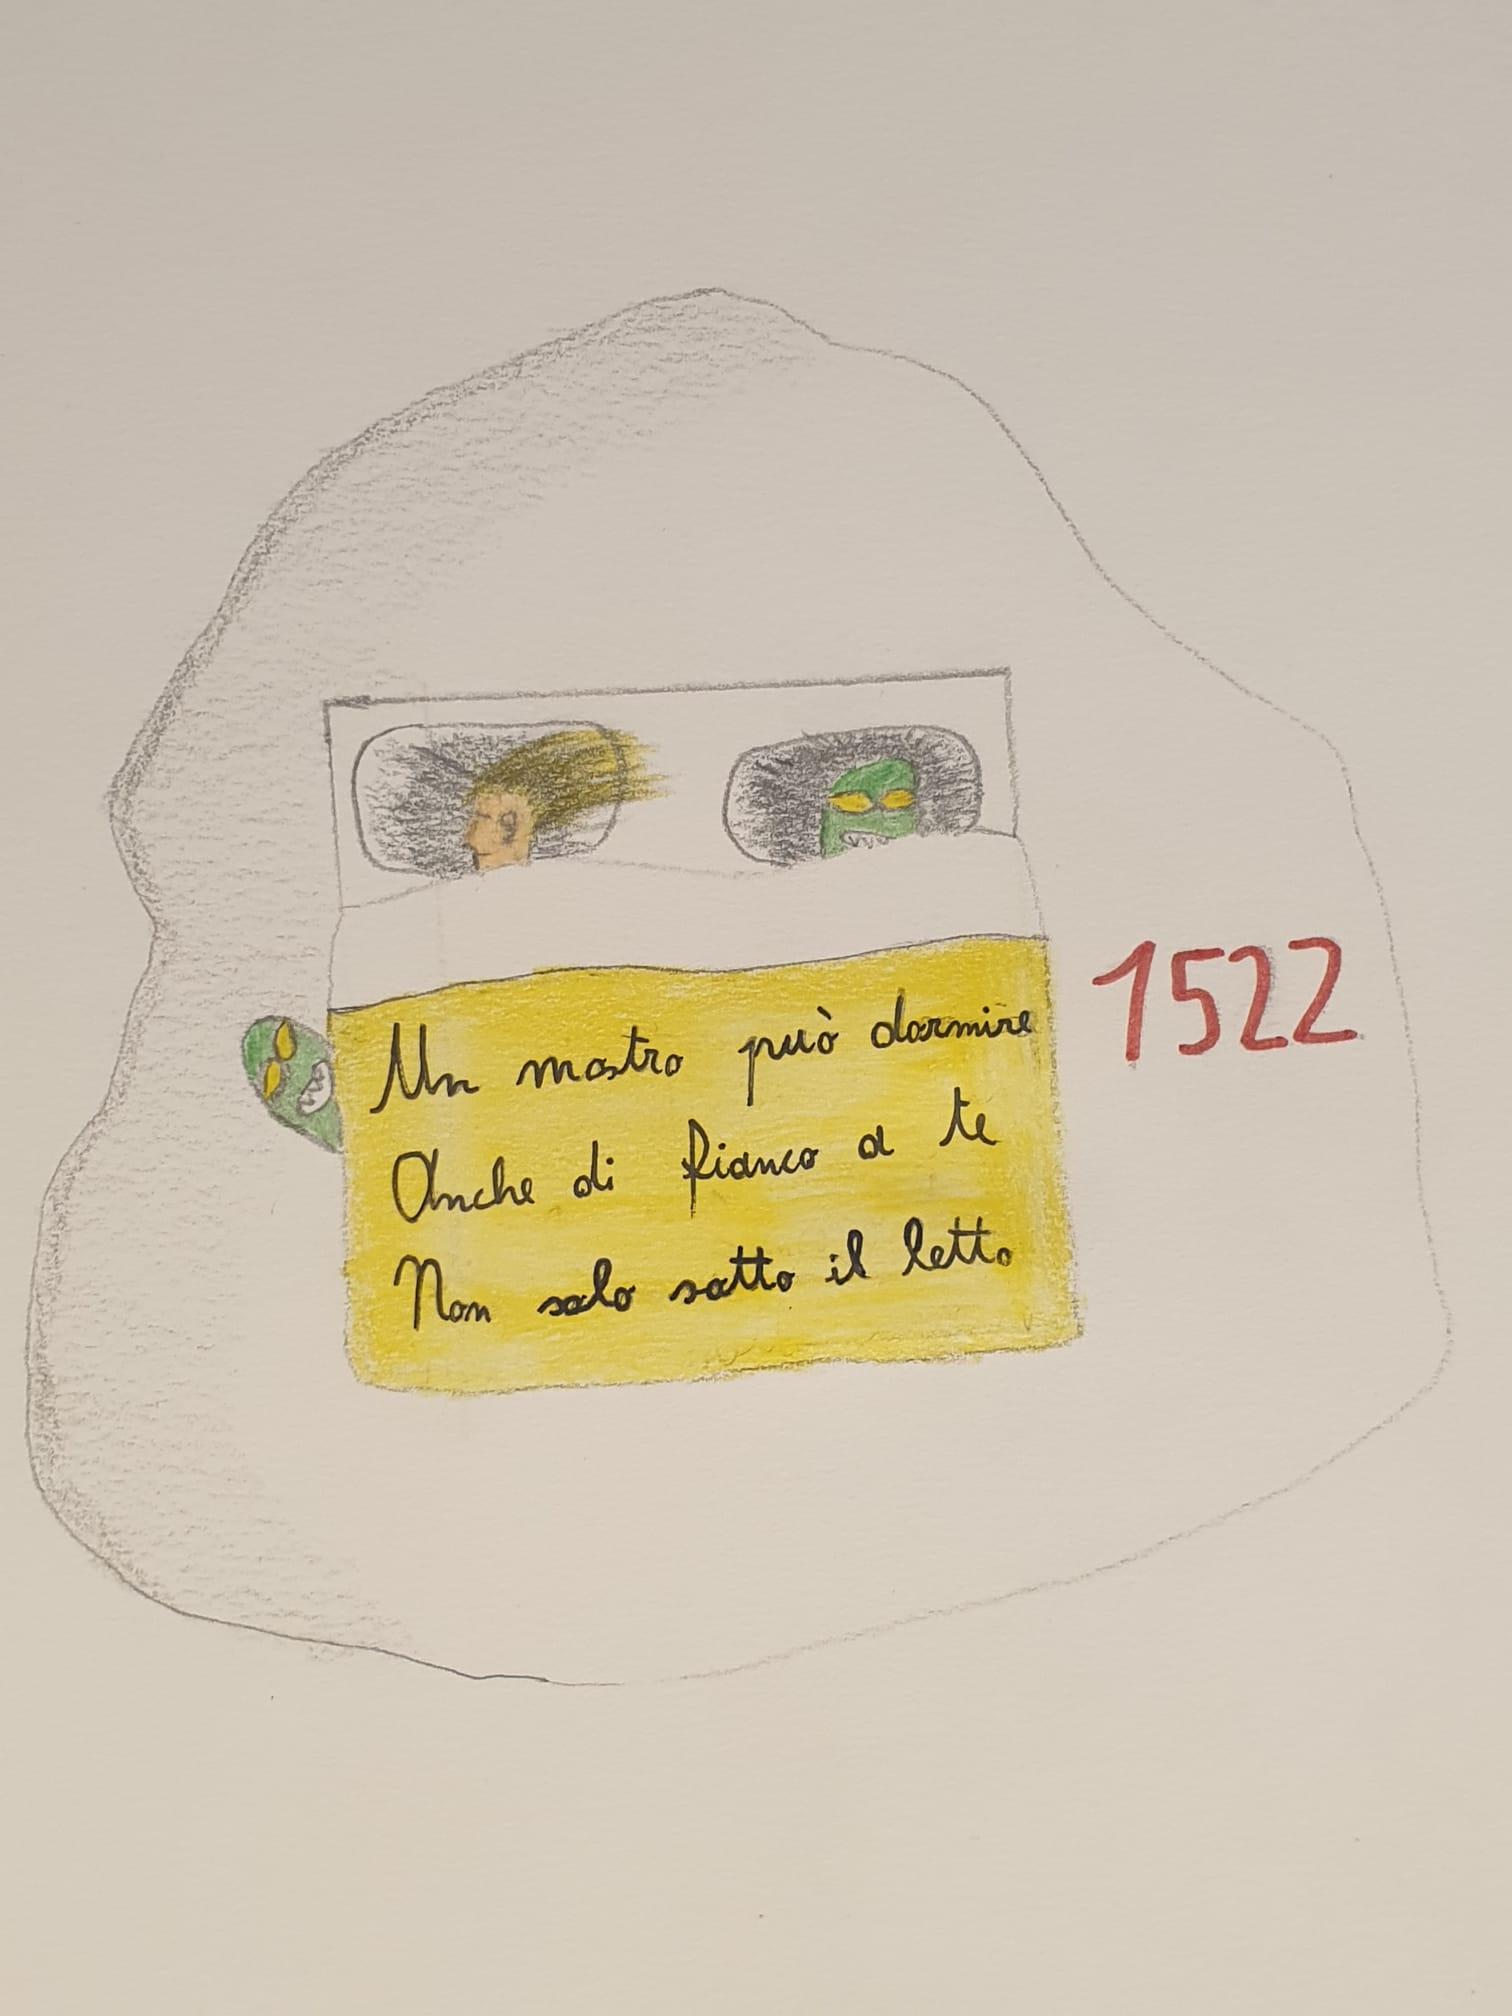 Un mostro può dormire
Anche di fianco a te
Non solo sotto il letto
1522